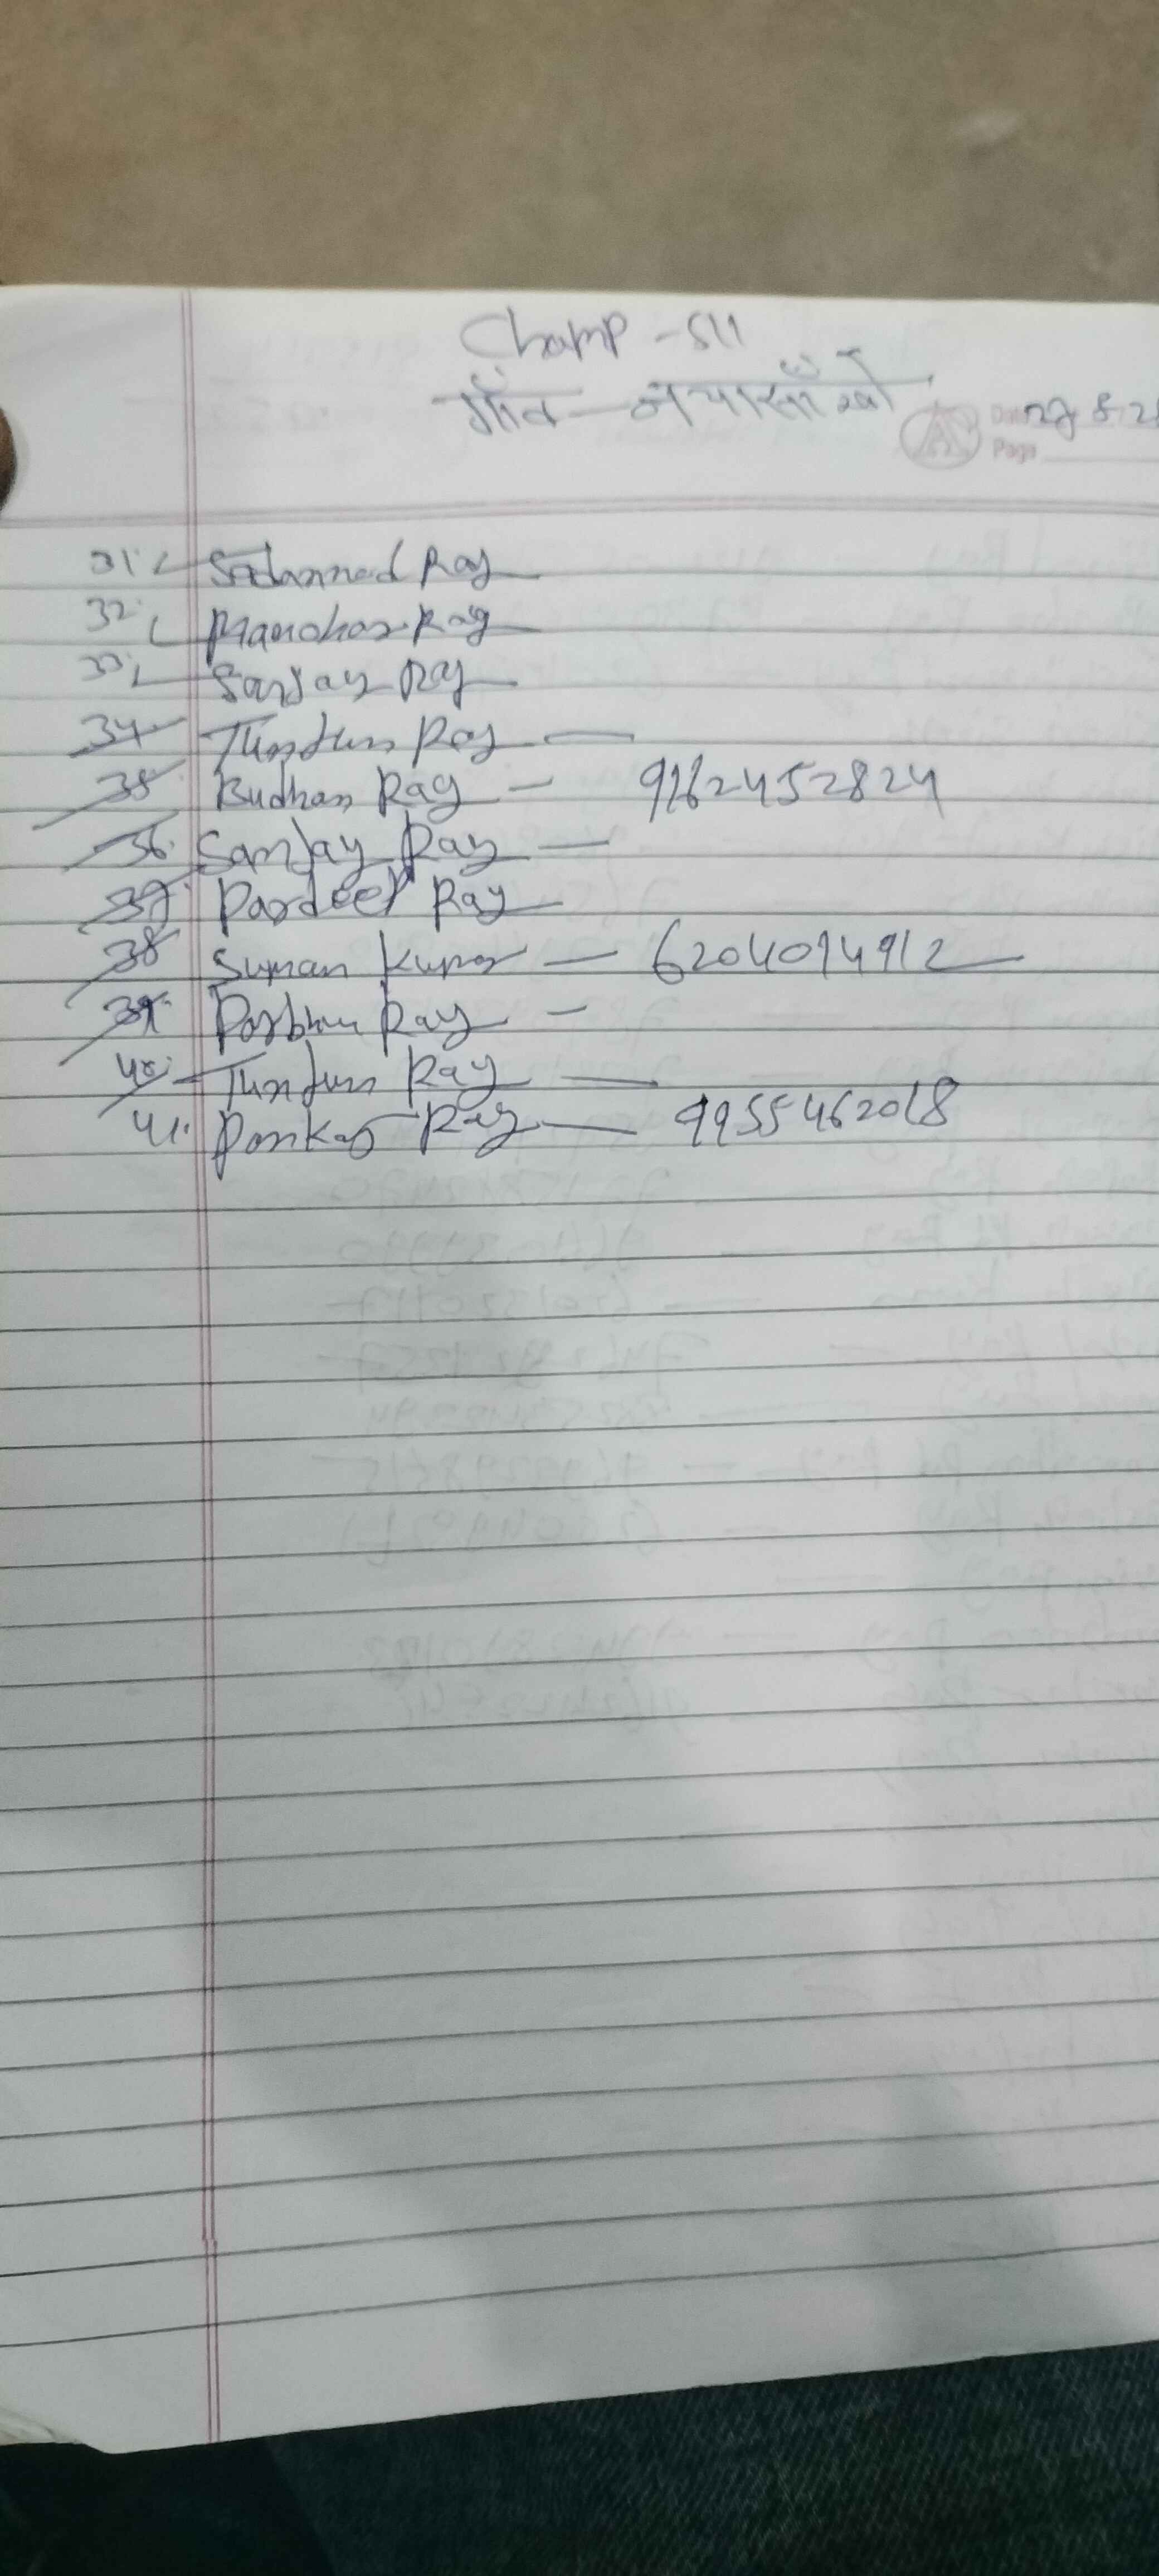 Champ - 511
गाँव - नयासाँखो
Page
31. Sadannad Ray
32. Manohar Ray
33. Sanjay Ray
34 Tuntun Ray —
35 Budhan Ray — 9162452824
36. Sanjay Ray —
37. Pardeep Ray
38 Suman Kumar — 6204094912
39. Parbhu Ray —
40. Tuntun Ray —
41. Pankaj Ray — 9955462018